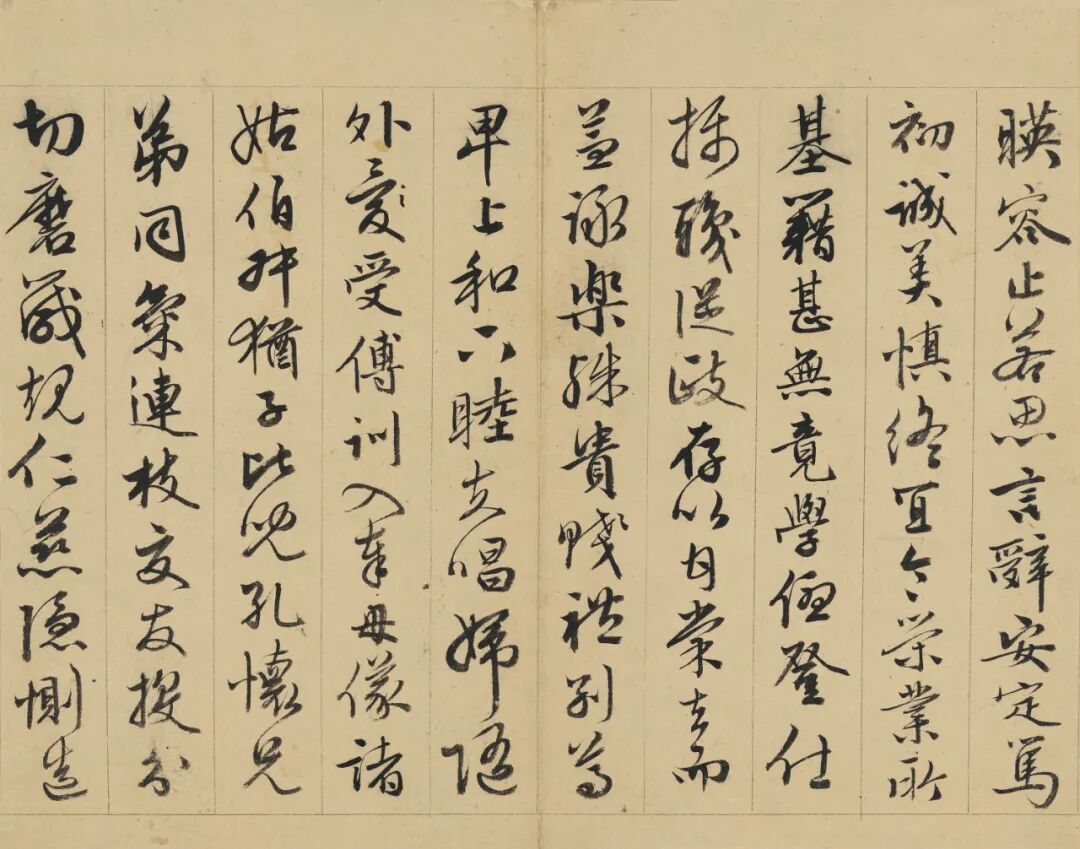 暎容止若思言辭安定篤
初誠美慎終宜令榮業所
基籍甚無竟學優登仕
攝職從政存以甘棠去而
益詠樂殊貴賤禮別尊
卑上和下睦夫唱婦隨
外愛受傅訓入奉母儀諸
姑伯叔猶子比兒孔懷兄
弟同氣連枝交友投分
切磨箴規仁慈隱惻造